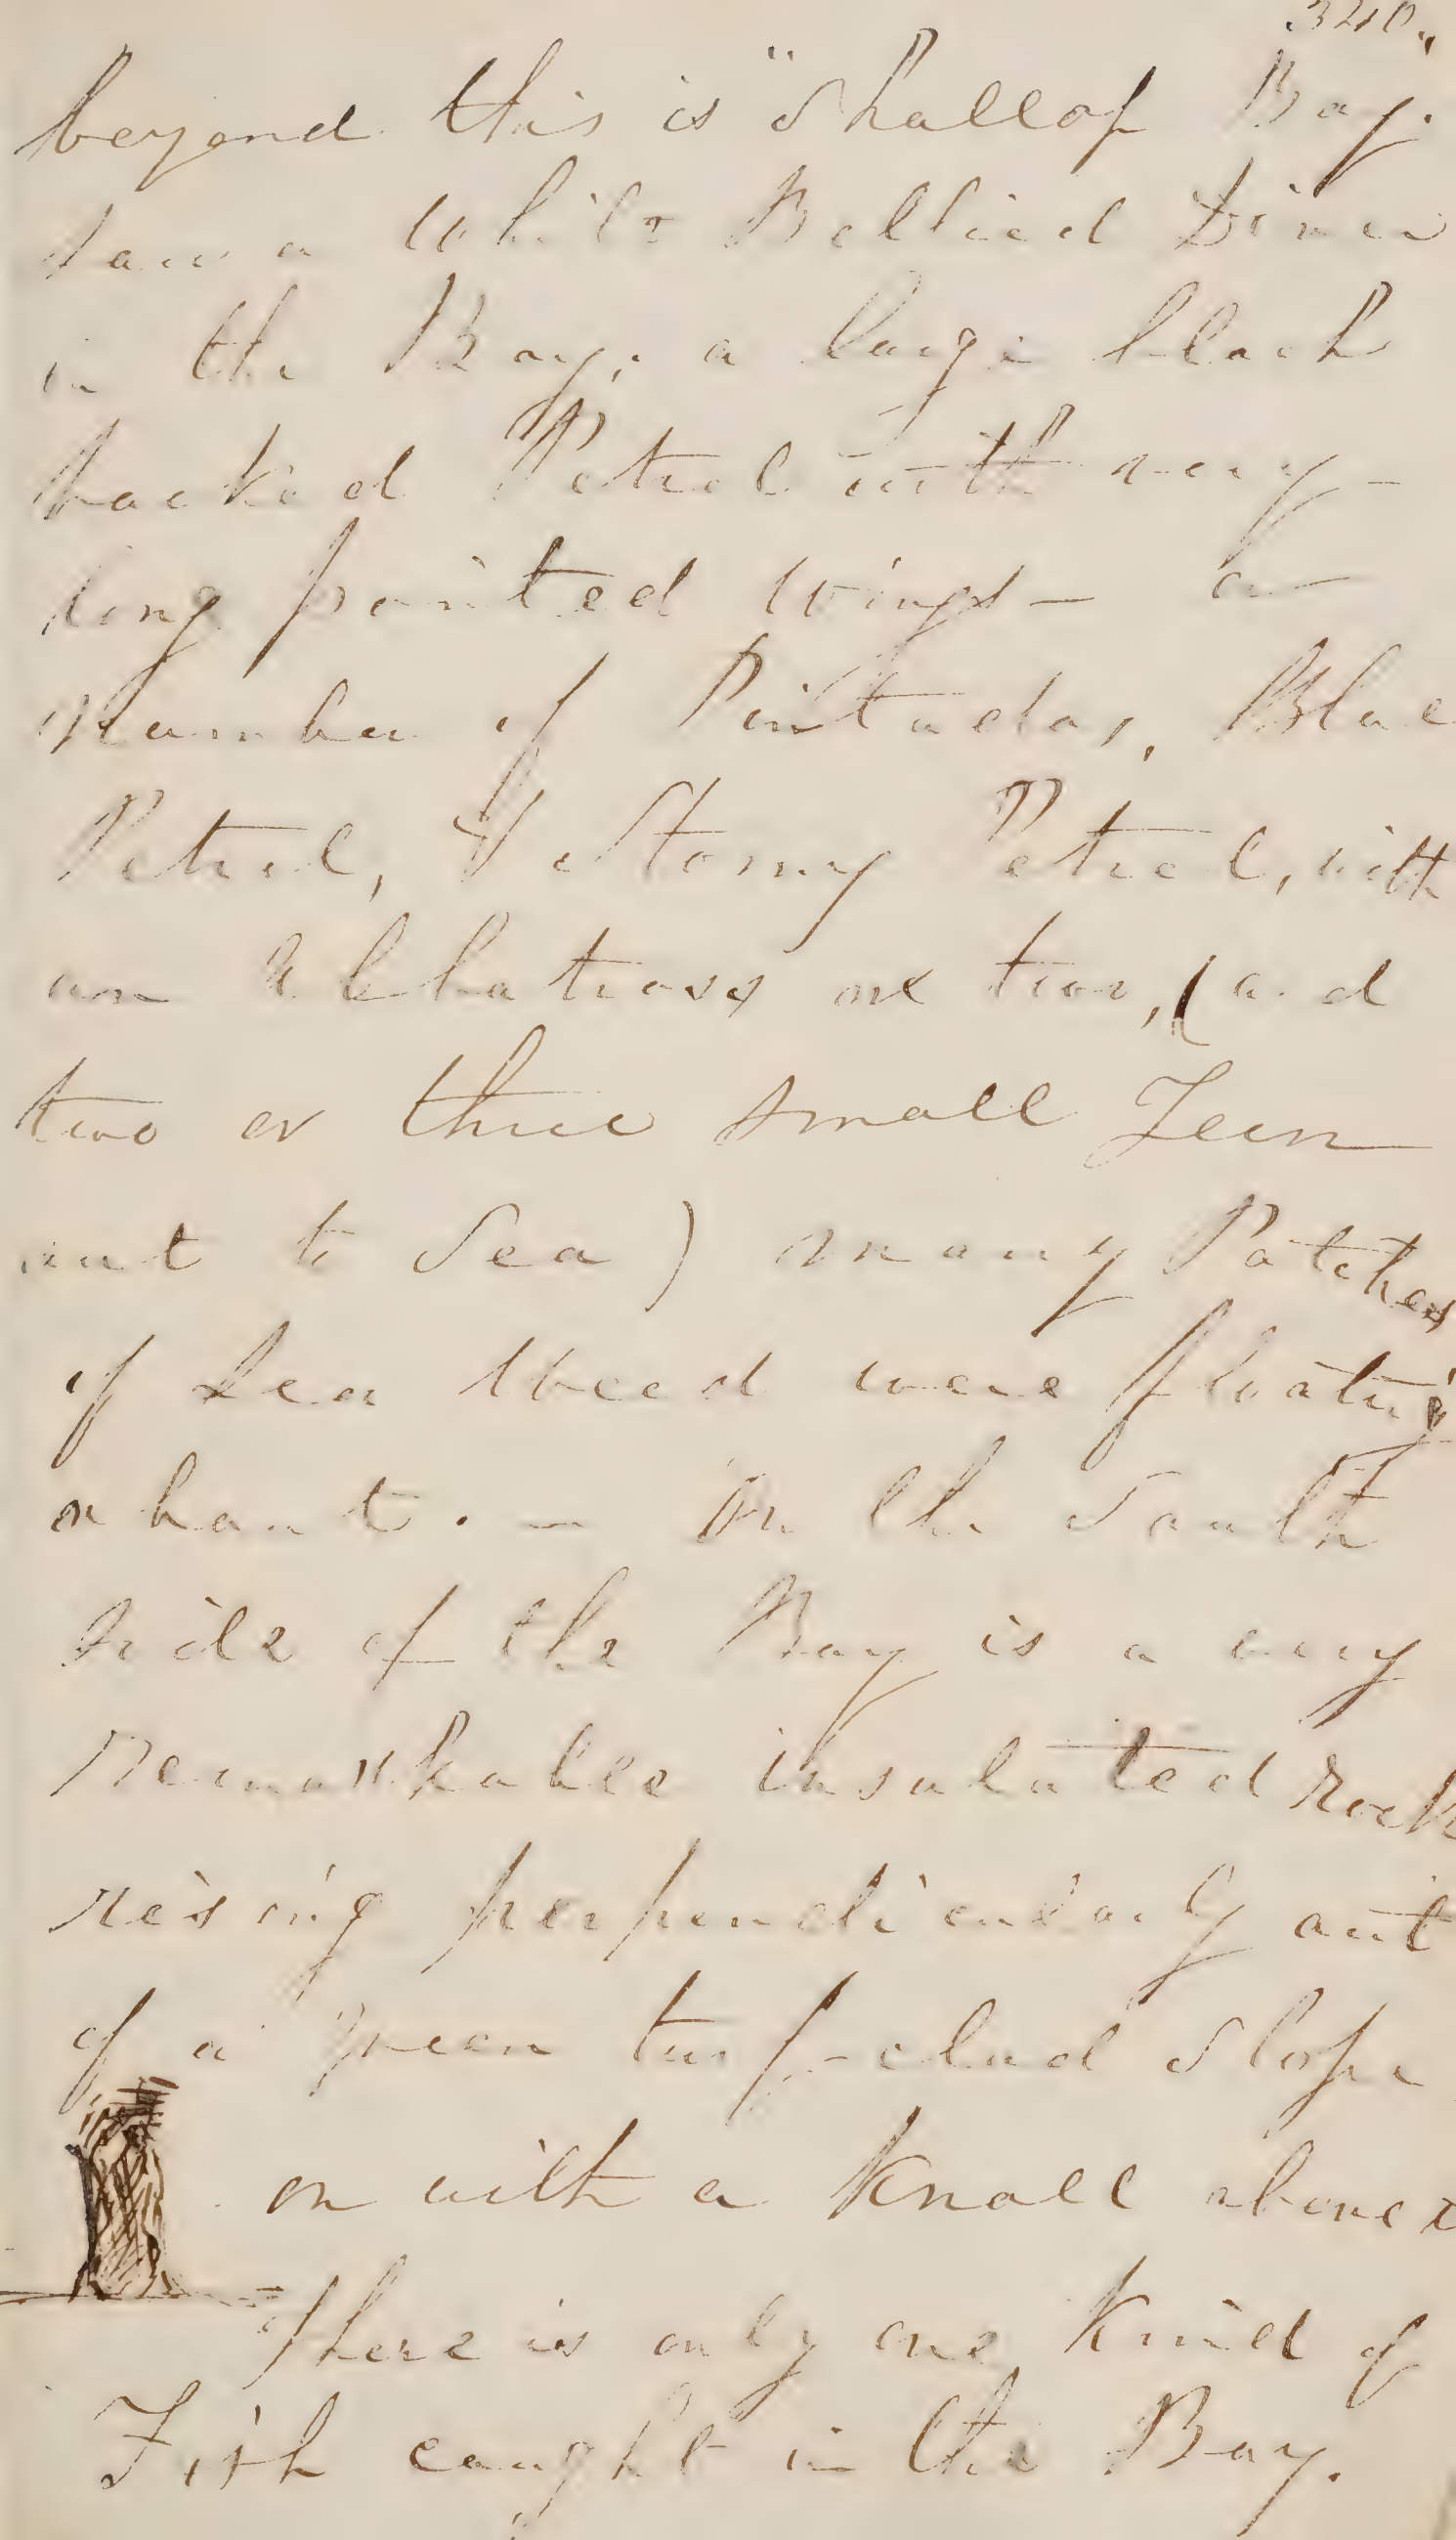 340"
beyond this is "Shallop Bay.
saw a White Bellied Diver
in the Bay; a large black
backed Petrel with very -
long pointed wings - a
Number of Pintados, Blue
Petrel, & Stormy Petrel, with
an Albatross or two, (and
two or three small Tern
out to Sea) many Patches
of Sea Weed were floating
about. - On the South
side of the Bay is a very
Remarkable insulated rock
rising perpendicularly out
of a green turf-clad slope
on with a Knoll above
There is only one Kind of
Fish caught in the Bay.